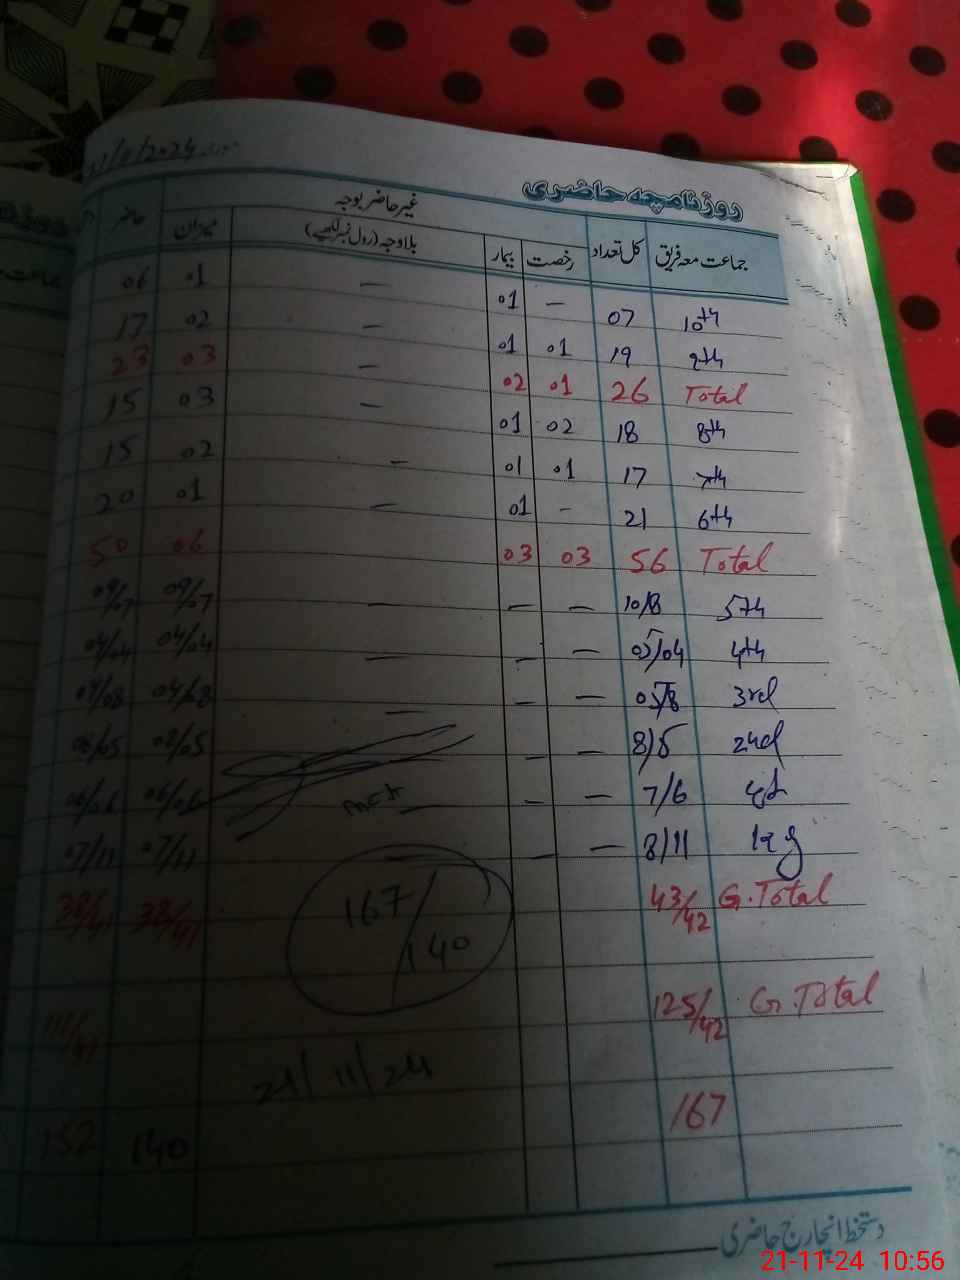 روزنامچہ حاضری
جماعت معہ فریق کل تعداد غیر حاضر بوجہ حاضر
رخصت بیمار بلاوجہ (رول نمبر لکھیے) میزان
10th 07 – 01 – 01 06
9th 19 01 01 – 02 17
Total 26 01 02 – 03 23
8th 18 02 01 – 03 15
7th 17 01 01 – 02 15
6th 21 - 01 – 01 20
Total 56 03 03 06 50
5th 10/8 – – – 09/07 09/07
4th 05/04 – – – 04/04 04/04
3rd 05/8 – – – 04/08 04/08
2nd 8/5 – –
7/6 – – 06/06 06/06
8/11 – – – 07/11 07/11
G.Total 43/42 38/41 38/41
167/140
G.Total 125/42 111/41
21/11/24
167
140 152
دستخط انچارج حاضری
21-11-24 10:56